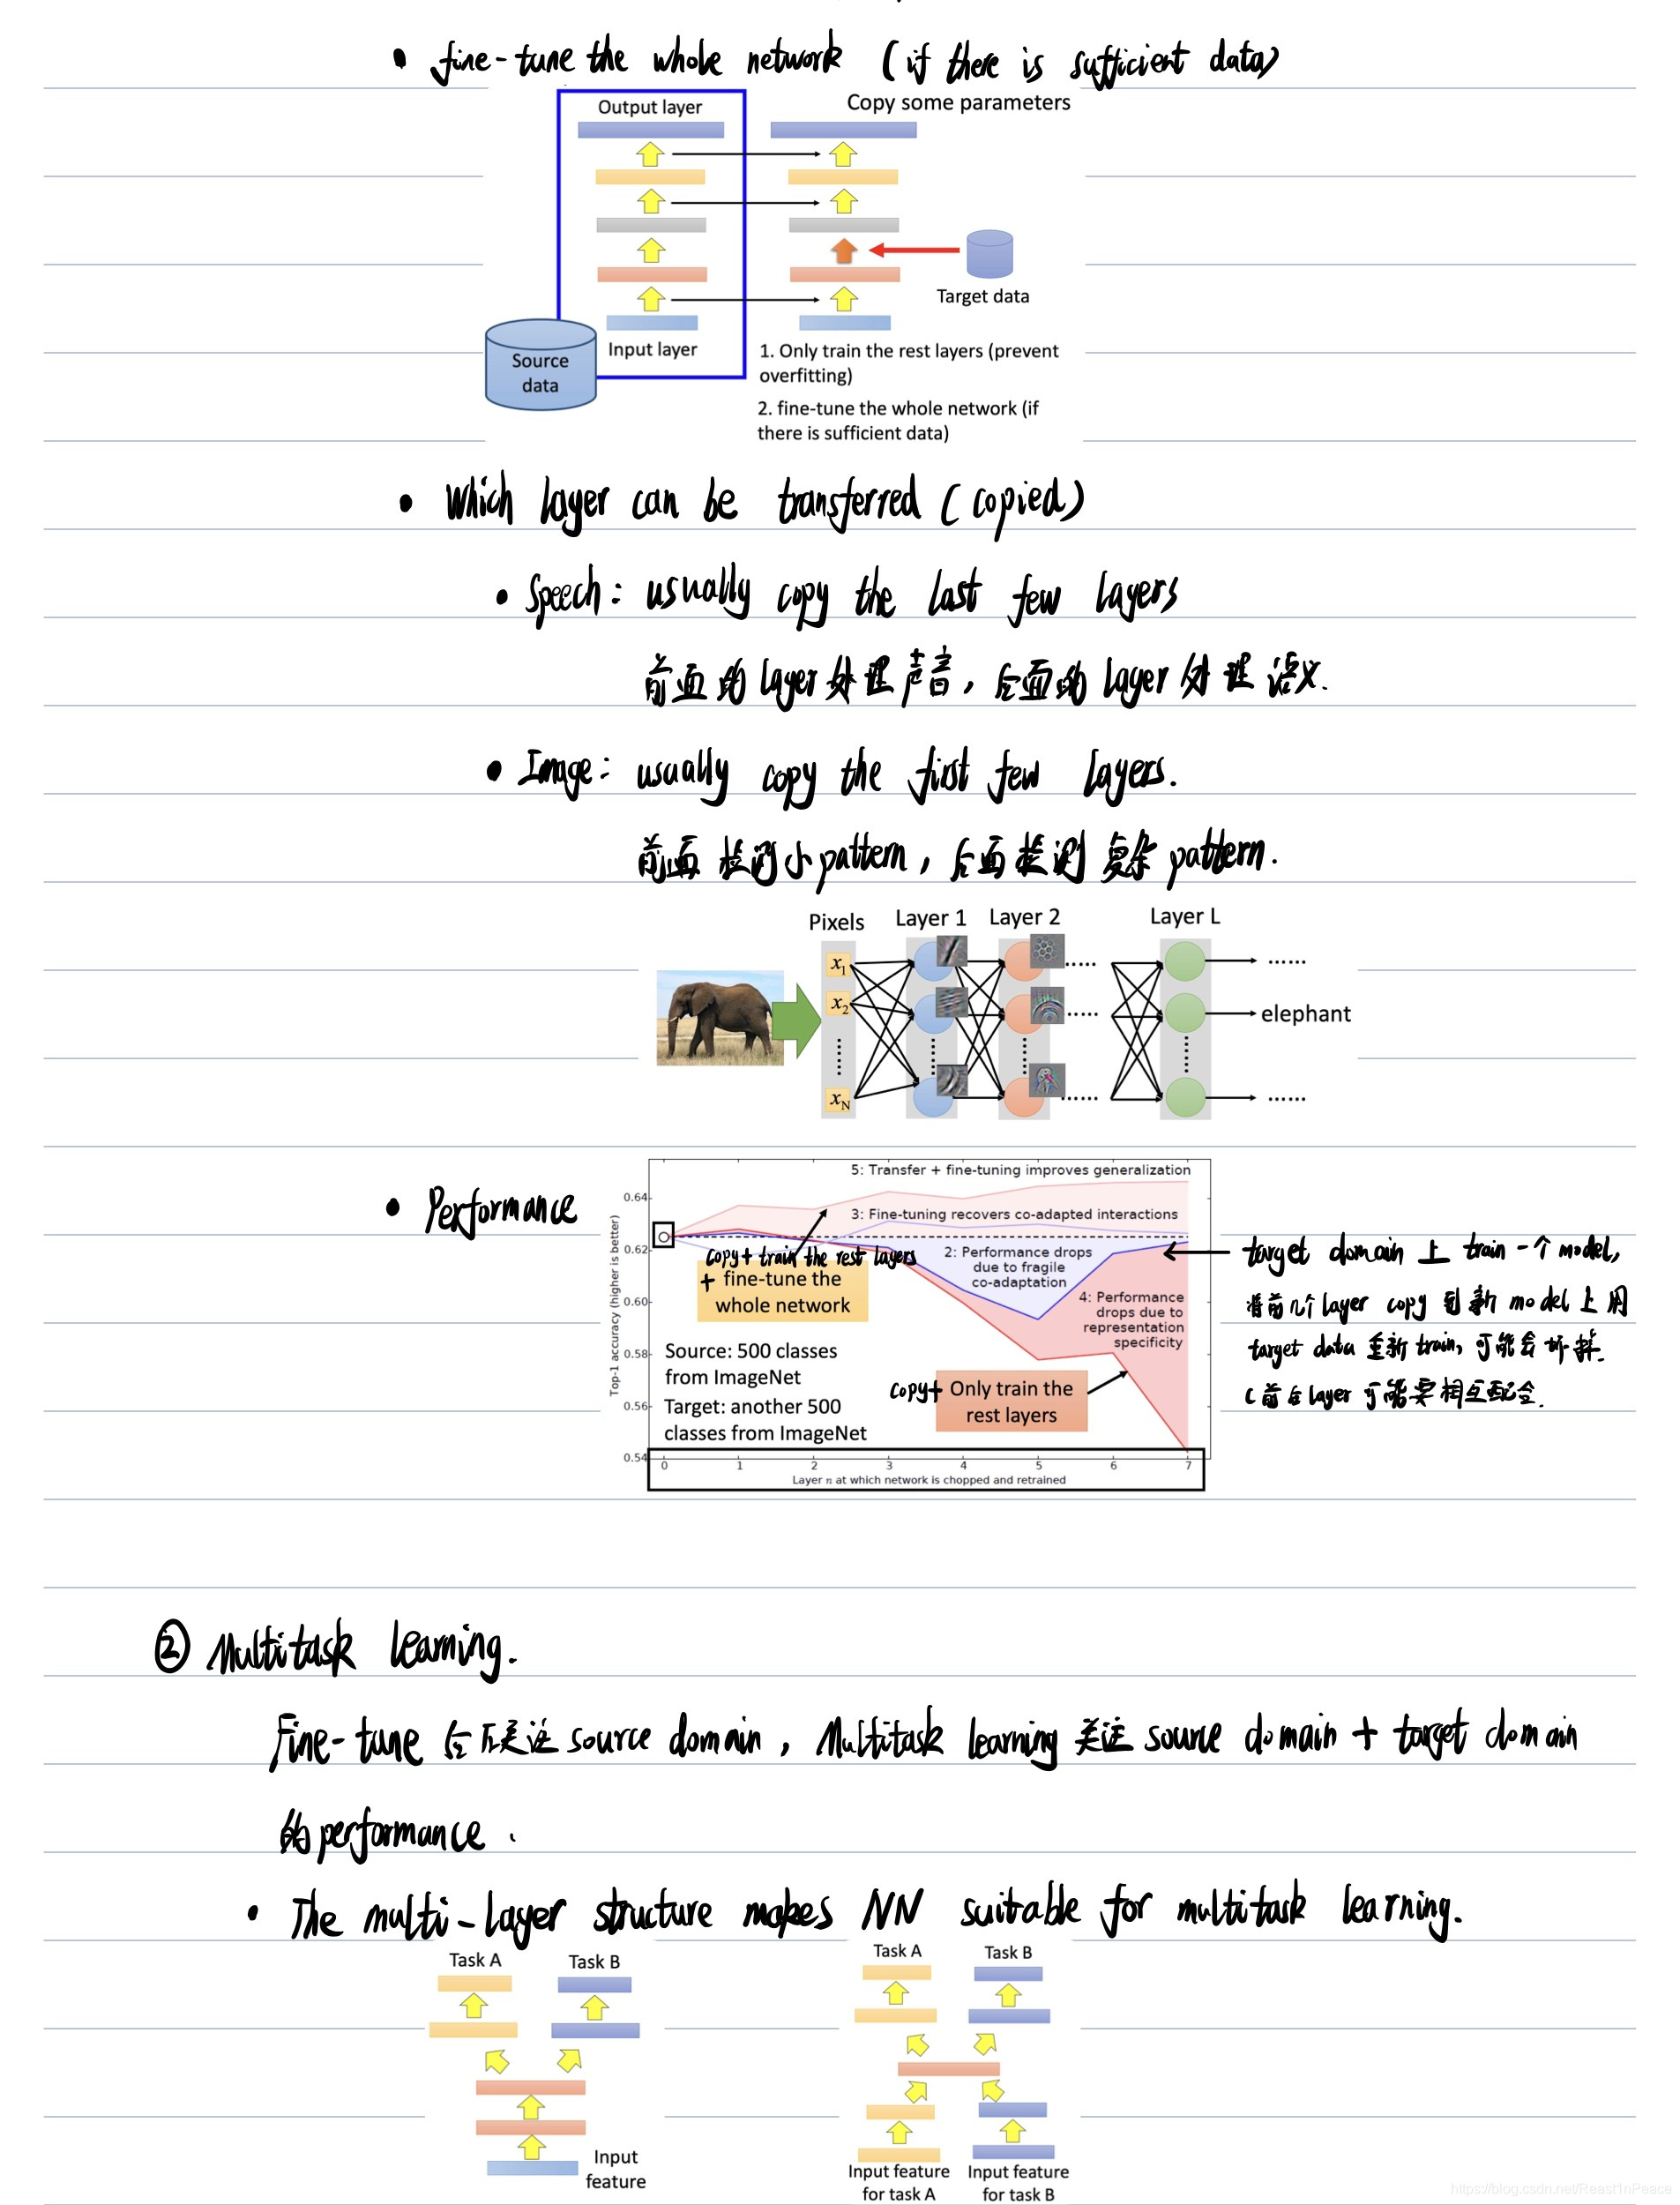 • fine-tune the whole network (if there is sufficient data)
Output layer
Copy some parameters
Target data
Source data
Input layer
1. Only train the rest layers (prevent
overfitting)
2. fine-tune the whole network (if
there is sufficient data)
• Which layer can be transferred (copied)
• Speech: usually copy the last few layers
前面的layer处理声音, 后面的layer处理语义.
• Image: usually copy the first few layers.
前面检测小pattern, 后面检测复杂pattern.
Pixels Layer 1 Layer 2 Layer L
x1 ...... ......
x2 ...... elephant
xN ...... ......
• Performance
5: Transfer + fine-tuning improves generalization
3: Fine-tuning recovers co-adapted interactions
2: Performance drops
due to fragile
co-adaptation
4: Performance
drops due to
representation
specificity
copy + train the rest layers
+ fine-tune the
whole network
Source: 500 classes
from ImageNet
Target: another 500
classes from ImageNet
copy+ Only train the
rest layers
Top-1 accuracy (higher is better)
0.64
0.62
0.60
0.58
0.56
0.54
0 1 2 3 4 5 6 7
Layer n at which network is chopped and retrained
target domain 上 train 一个 model,
将前几个layer copy 到新 model 上用
target data 重新 train, 可能会坏掉.
(前后layer可能要相互配合.
② Multitask learning.
Fine-tune 后不关注 source domain, Multitask learning 关注 source domain + target domain
的performance.
• The multi-layer structure makes NN suitable for multitask learning.
Task A Task B
Input
feature
Task A Task B
Input feature
for task A
Input feature
for task B
https://blog.csdn.net/Reast1nPeace